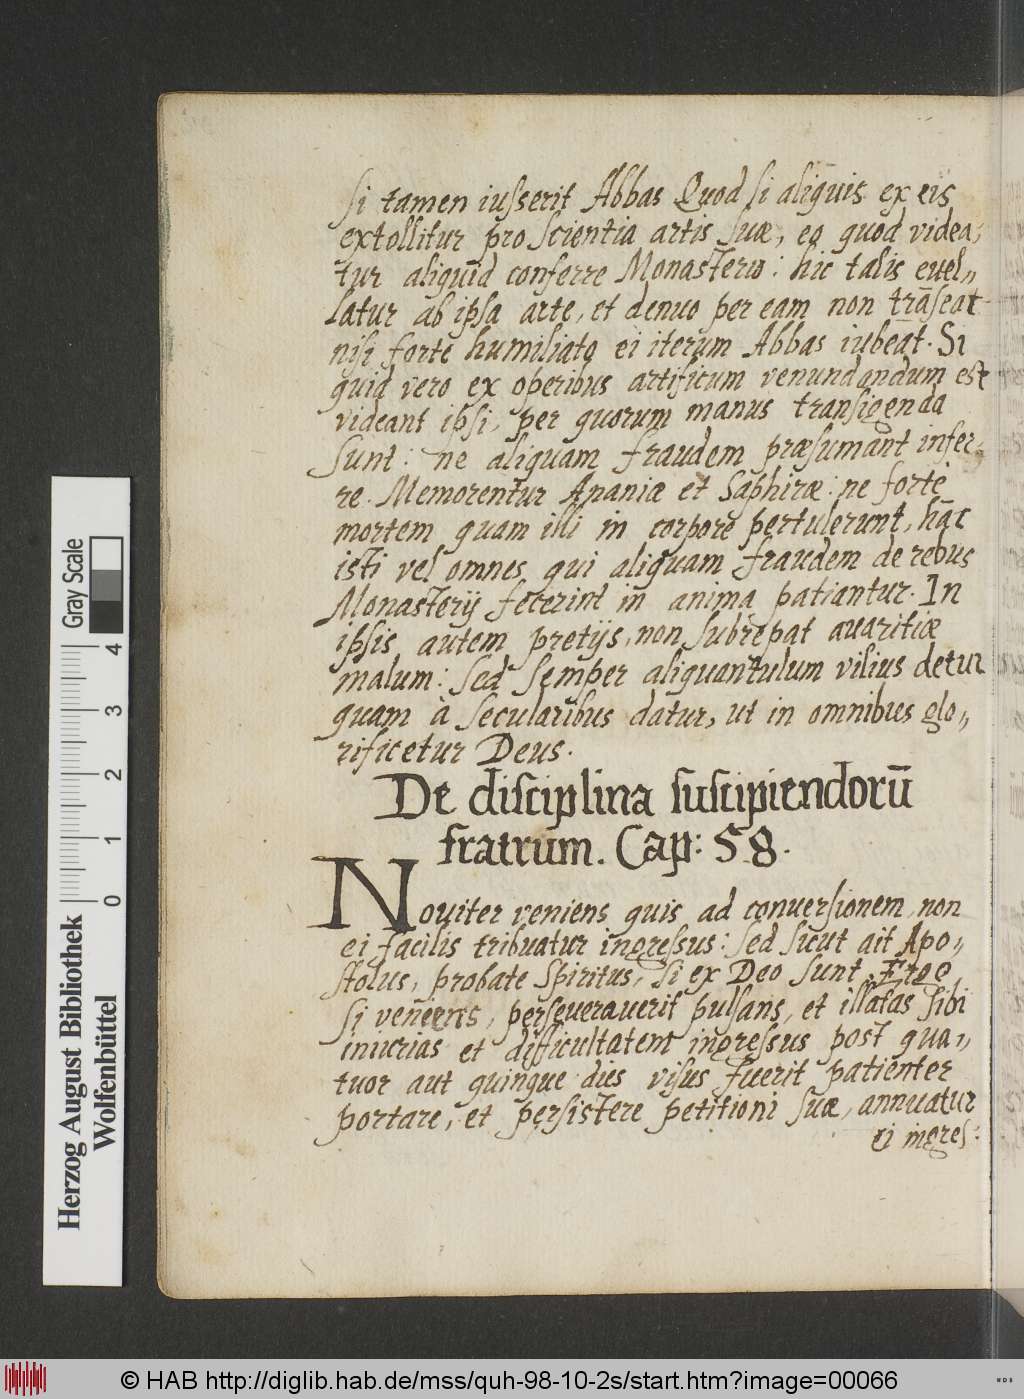 si tamen iusserit Abbas Quod si aliquis ex eis
extollitur pro scientia artis suæ, eo quod videa,
tur aliquid conferre Monasterio: hic talis euel„
latur ab ipsa arte, et denuo per eam non trāseat
nisi forte humiliato ei iterum Abbas iubeat. Si
quid vero ex operibus artificum venundandum est
videant ipsi, per quorum manus transigenda
sunt: ne aliquam fraudem præsumant infer„
re. Memorentur Ananiæ et Saphiræ: ne forte
mortem quam illi in corpore pertulerunt, hāc
isti vel omnes qui aliquam fraudem de rebus
Monasterij fecerint in anima patiantur. In
ipsis autem pretijs, non subrepat auaritiæ
malum: sed semper aliquantulum vilius detur
quam à secularibus datur, ut in omnibus glo„
rificetur Deus.
De disciplina suscipiendorū
fratrum. Cap: 58.
Nouiter veniens quis ad conuersionem non
ei facilis tribuatur ingressus: sed sicut ait Apo„
stolus, probate spiritus, si ex Deo sunt. Ergo
si veniens, perseuerauerit pulsans, et illatas sibi
iniurias et difficultatem ingressus post qua„
tuor aut quinque dies visus fuerit patienter
portare, et persistere petitioni suæ, annuatur
ei ingres:
Herzog August Bibliothek
Wolfenbüttel
Gray Scale
0 1 2 3 4
© HAB http://diglib.hab.de/mss/quh-98-10-2s/start.htm?image=00066